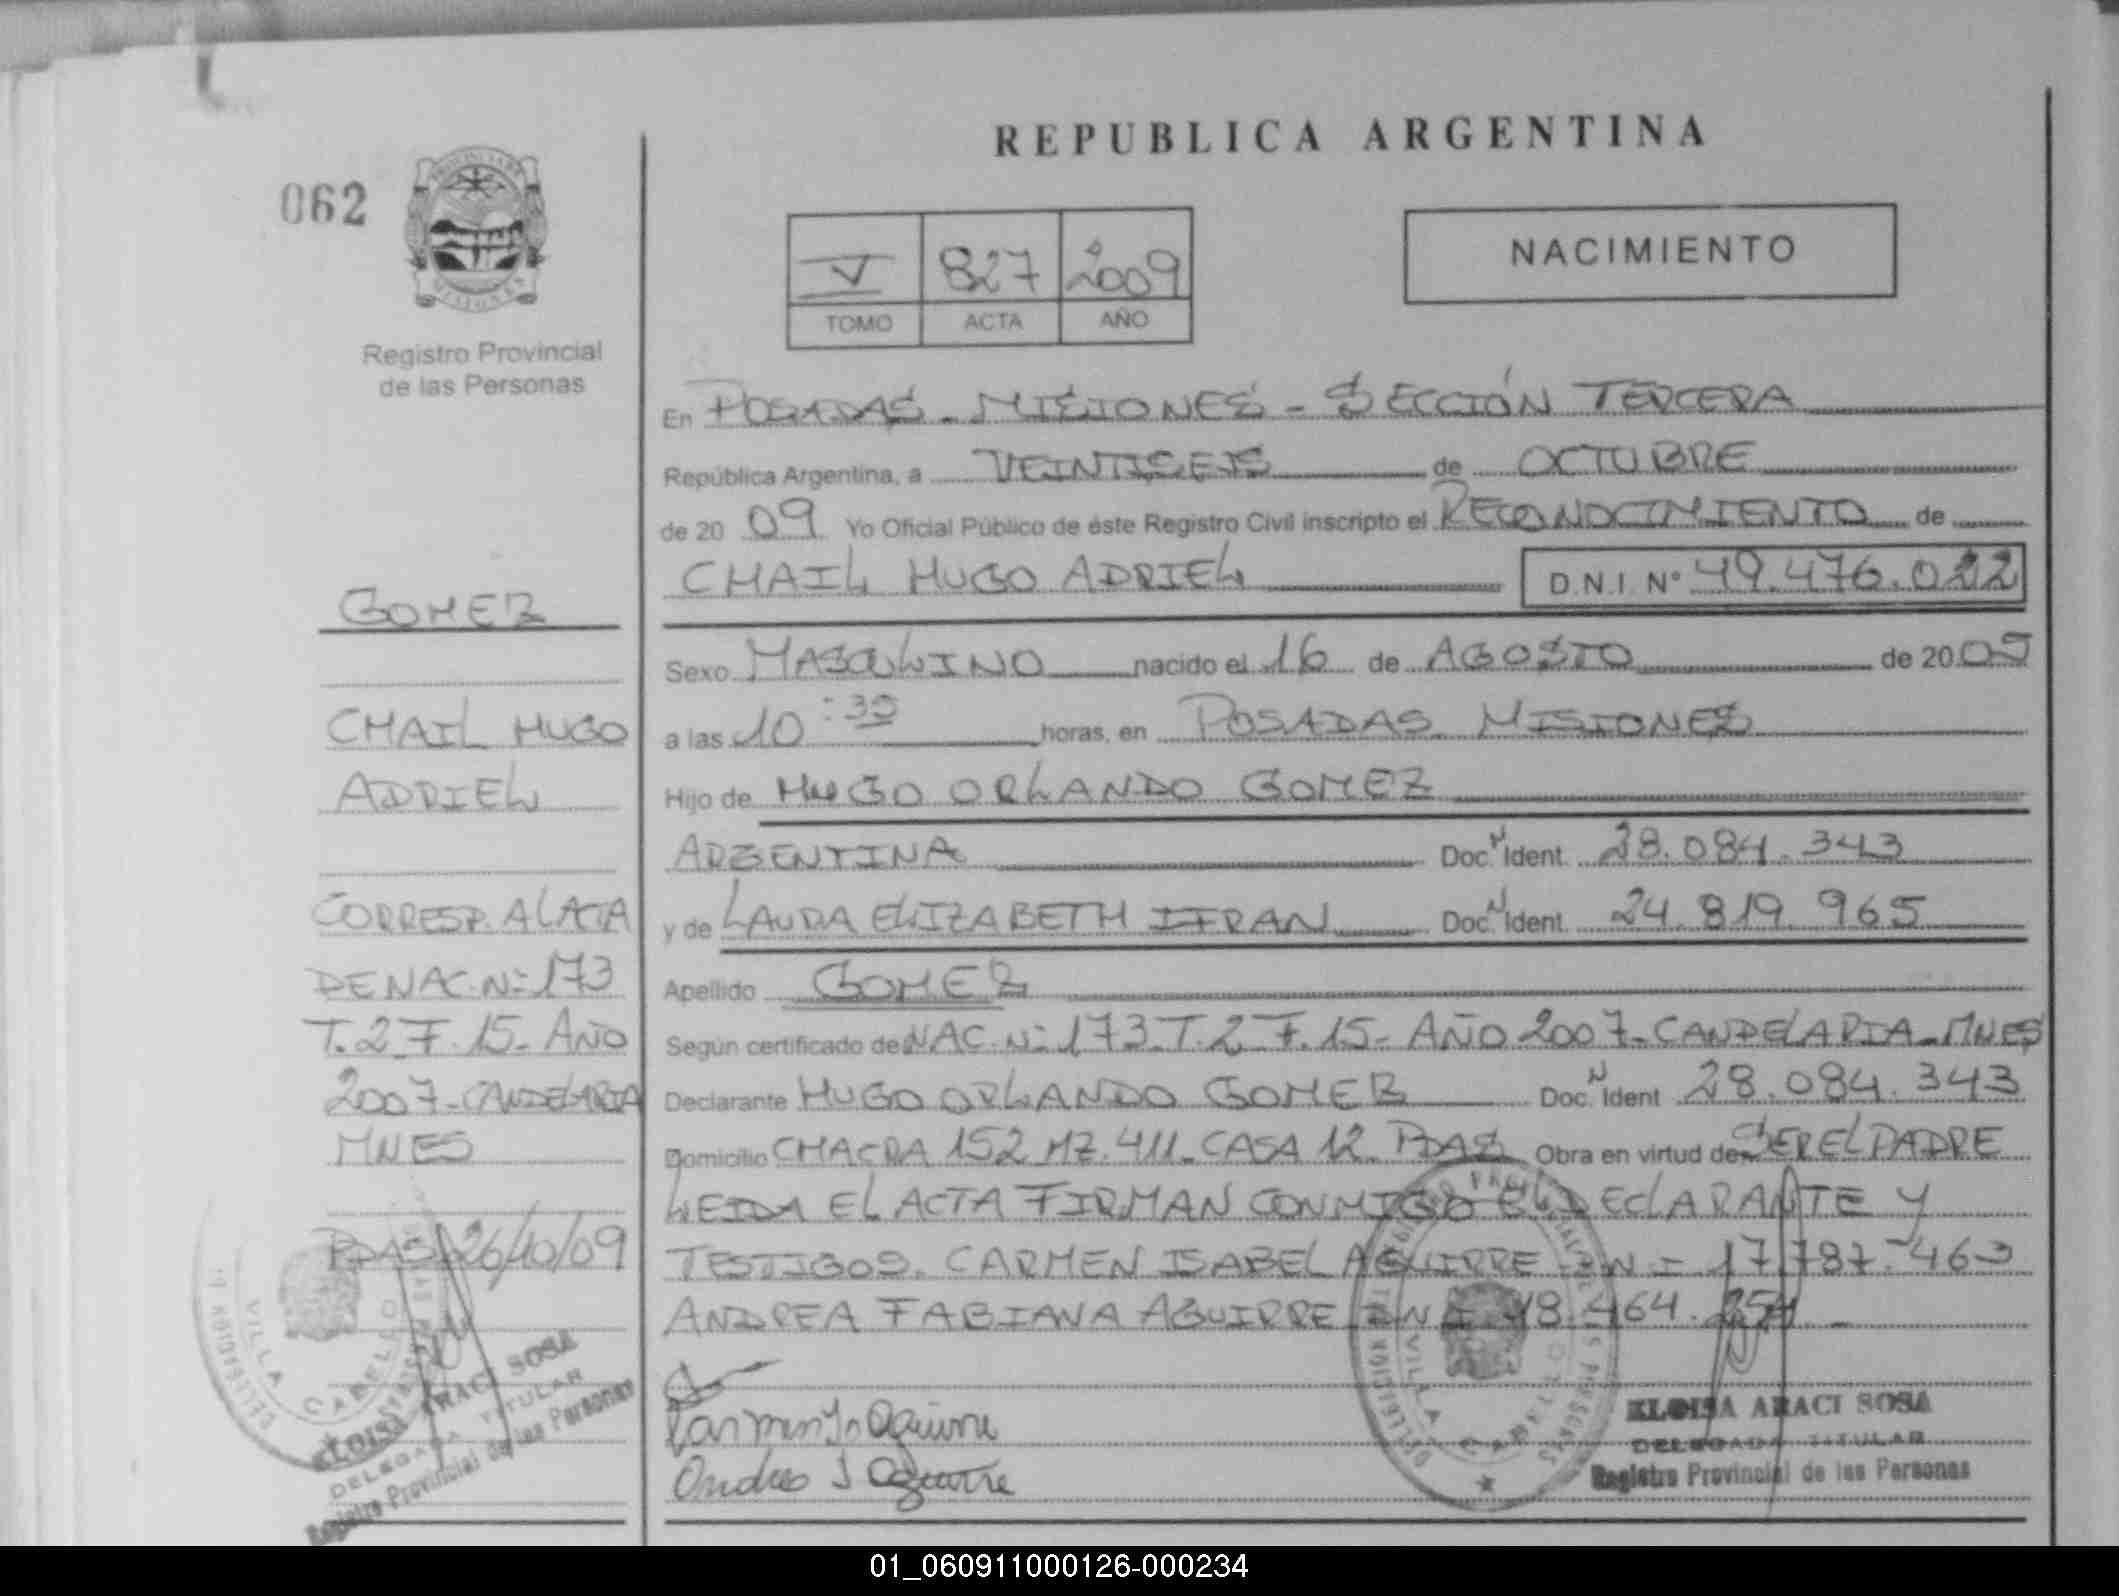 062
REPUBLICA ARGENTINA
V 827 2009
TOMO ACTA AÑO
NACIMIENTO
Registro Provincial
de las Personas
GOMEZ
CHAIL HUGO
ADRIEL
CORRESP. AL ACTA
DE NAC. Nº 173
T. 2 F. 15 - AÑO
2007 - CANDELARIA
MNES
PDAS 26/10/09
En POSADAS - MISIONES - SECCIÓN TERCERA
República Argentina, a VEINTISEIS de OCTUBRE
de 20 09 Yo Oficial Público de éste Registro Civil inscripto el RECONOCIMIENTO de
CHAIL HUGO ADRIEL D.N.I. Nº 49.476.022
Sexo MASCULINO nacido el 16 de AGOSTO de 20
a las 10 horas, en POSADAS MISIONES
Hijo de HUGO ORLANDO GOMEZ
ARGENTINA Doc. N Ident 28.084.343
y de LAURA ELIZABETH IFRAN Doc. N Ident 24.819.965
Apellido GOMEZ
Según certificado de NAC. Nº 173 T. 2 F. 15 - AÑO 2007 - CANDELARIA - MNES
Declarante HUGO ORLANDO GOMEZ Doc. N Ident 28.084.343
Domicilio CHACRA 152 MZ. 411 - CASA 12 PDAS Obra en virtud de SER EL PADRE
LEIDA EL ACTA FIRMAN CONMIGO EL DECLARANTE Y
TESTIGOS. CARMEN ISABEL AGUIRRE DNI 17.787.463
ANDREA FABIANA AGUIRRE DNI 18.464.254
Carmen I. Aguirre
Andrea Aguirre
VILLA CABELLO
ELOISA ARACI SOSA
DELEGADA TITULAR
Registro Provincial de las Personas
VILLA CABELLO
ELOISA ARACI SOSA
DELEGADA TITULAR
Registro Provincial de las Personas
01_060911000126-000234